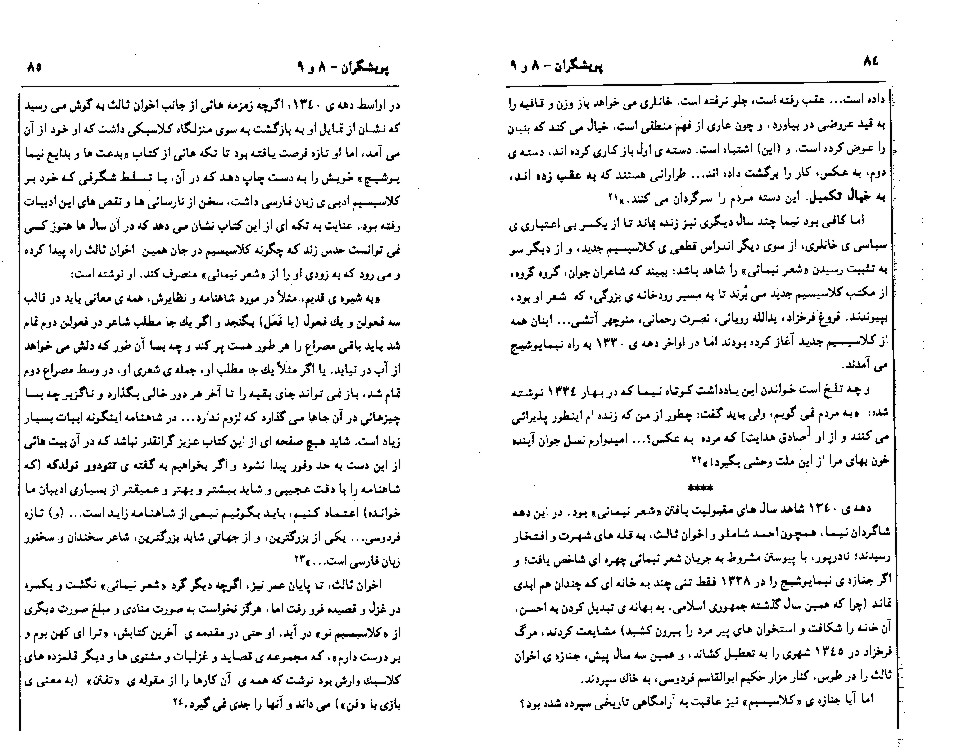 ۸٤
پویشگران - ۸ و ۹
داده است... عقب رفته است، جلو نرفته است. خانلری می خواهد باز وزن و قافیه را
به قید عروضی در بیاورد، و چون عاری از فهم منطقی است، خیال می کند که بنیان
را عوض کرده است. و (این) اشتباه است. دسته ی اول باز کاری کرده اند، دسته ی
دوم، به عکس، کار را برگشت داده اند... طرارانی هستند که به عقب زده اند،
به خیال تکمیل. این دسته مردم را سرگردان می کنند.»۲۱
اما کافی بود نیما چند سال دیگری نیز زنده بماند تا از یکسر بی اعتباری ی
سیاسی ی خانلری، از سوی دیگر اندراس قطعی ی کلاسیسیم جدید، و از دیگر سو
به تثبیت رسیدن «شعر نیمائی» را شاهد باشد؛ ببیند که شاعران جوان، گروه گروه،
از مکتب کلاسیسیم جدید می بُرند تا به مسیر رودخانه ی بزرگی، که شعر او بود،
بپیوندند. فروغ فرخزاد، یدالله رویائی، نصرت رحمانی، منوچهر آتشی... اینان همه
از کلاسیسیم جدید آغاز کرده بودند اما در اواخر دهه ی ۱۳۳۰ به راه نیمایوشیج
می آمدند.
و چه تلخ است خواندن این یادداشت کوتاه نیما که در بهار ۱۳۳٤ نوشته
شده: «به مردم نمی گویم، ولی باید گفت: چطور از من که زنده ام اینطور پذیرائی
می کنند و از او [صادق هدایت] که مرده به عکس؟... امیدوارم نسل جوان آینده
خون بهای مرا از این ملت وحشی بگیرد!»۲۲
****
دهه ی ۱۳٤۰ شاهد سال های مقبولیت یافتن «شعر نیمائی» بود. در این دهه
شاگردان نیما، همچون احمد شاملو و اخوان ثالث، به قله های شهرت و افتخار
رسیدند؛ نادرپور، با پیوستن مشروط به جریان شعر نیمائی چهره ای شاخص یافت؛ و
اگر جنازه ی نیمایوشیج را در ۱۳۳۸ فقط تنی چند به خانه ای که چندان هم ابدی
نماند (چرا که همین سال گذشته جمهوری اسلامی، به بهانه ی تبدیل کردن به احسن،
آن خانه را شکافت و استخوان های پیر مرد را بیرون کشید) مشایعت کردند، مرگ
فرخزاد در ۱۳٤۵ شهری را به تعطیل کشاند، و همین سه سال پیش، جنازه ی اخوان
ثالث را در طوس، کنار مزار حکیم ابوالقاسم فردوسی، به خاک سپردند.
اما آیا جنازه ی «کلاسیسیم» نیز عاقبت به آرامگاهی تاریخی سپرده شده بود؟
پویشگران - ۸ و ۹
۸۵
در اواسط دهه ی ۱۳٤۰، اگرچه زمزمه هائی از جانب اخوان ثالث به گوش می رسید
که نشان از تمایل او به بازگشت به سوی منزلگاه کلاسیکی داشت که او خود از آن
می آمد، اما او تازه فرصت یافته بود تا تکه هائی از کتاب «بدعت ها و بدایع نیما
یوشیج» خویش را به دست چاپ دهد که در آن، با تسلط شگرفی که خود بر
کلاسیسیم ادبی ی زبان فارسی داشت، سخن از نارسائی ها و نقص های این ادبیات
رفته بود. عنایت به تکه ای از این کتاب نشان می دهد که در آن سال ها هنوز کسی
نمی توانست حدس زند که چگونه کلاسیسیم در جان همین اخوان ثالث راه پیدا کرده
و می رود که به زودی او را از «شعر نیمائی» منصرف کند. او نوشته است:
«به شیوه ی قدیم، مثلاً در مورد شاهنامه و نظایرش، همه ی معانی باید در قالب
سه فعولن و یك فعول (یا فَعَل) بگنجد و اگر یك جا مطلب شاعر در فعولن دوم تمام
شد باید باقی مصراع را هر طور هست پر کند و چه بسا آن طور که دلش می خواهد
از آب در نیاید. یا اگر مثلاً یك جا مطلب او، جمله ی شعری او، در وسط مصراع دوم
تمام شد، باز نمی تواند جای بقیه را تا آخر هر دور خالی بگذارد و ناگزیر چه بسا
چیزهائی در آن جاها می گذارد که لزوم ندارد... در شاهنامه اینگونه ابیات بسیار
زیاد است. شاید هیچ صفحه ای از این کتاب عزیز گرانقدر نباشد که در آن بیت هائی
از این دست به حد وفور پیدا نشود و اگر بخواهیم به گفته ی تئودور نولدکه (که
شاهنامه را با دقت عجیبی و شاید بیشتر و بهتر و عمیقتر از بسیاری ادیبان ما
خوانده) اعتماد کنیم، باید بگوئیم نیمی از شاهنامه زاید است... (و) تازه
فردوسی... یکی از بزرگترین، و از جهاتی شاید بزرگترین، شاعر سخندان و سخنور
زبان فارسی است...»۲۳
اخوان ثالث، تا پایان عمر نیز، اگرچه دیگر گرد «شعر نیمائی» نگشت و یکسره
در غزل و قصیده فرو رفت اما، هرگز نخواست به صورت منادی و مبلغ صورت دیگری
از «کلاسیسیم نو» در آید. او حتی در مقدمه ی آخرین کتابش، «ترا ای کهن بوم و
بر دوست دارم»، که مجموعه ی قصاید و غزلیات و مثنوی ها و دیگر قلمزده های
کلاسیك وارش بود نوشت که همه ی آن کارها را از مقوله ی «تفنن» (به معنی ی
بازی با «فن») می داند و آنها را جدی نمی گیرد.۲٤